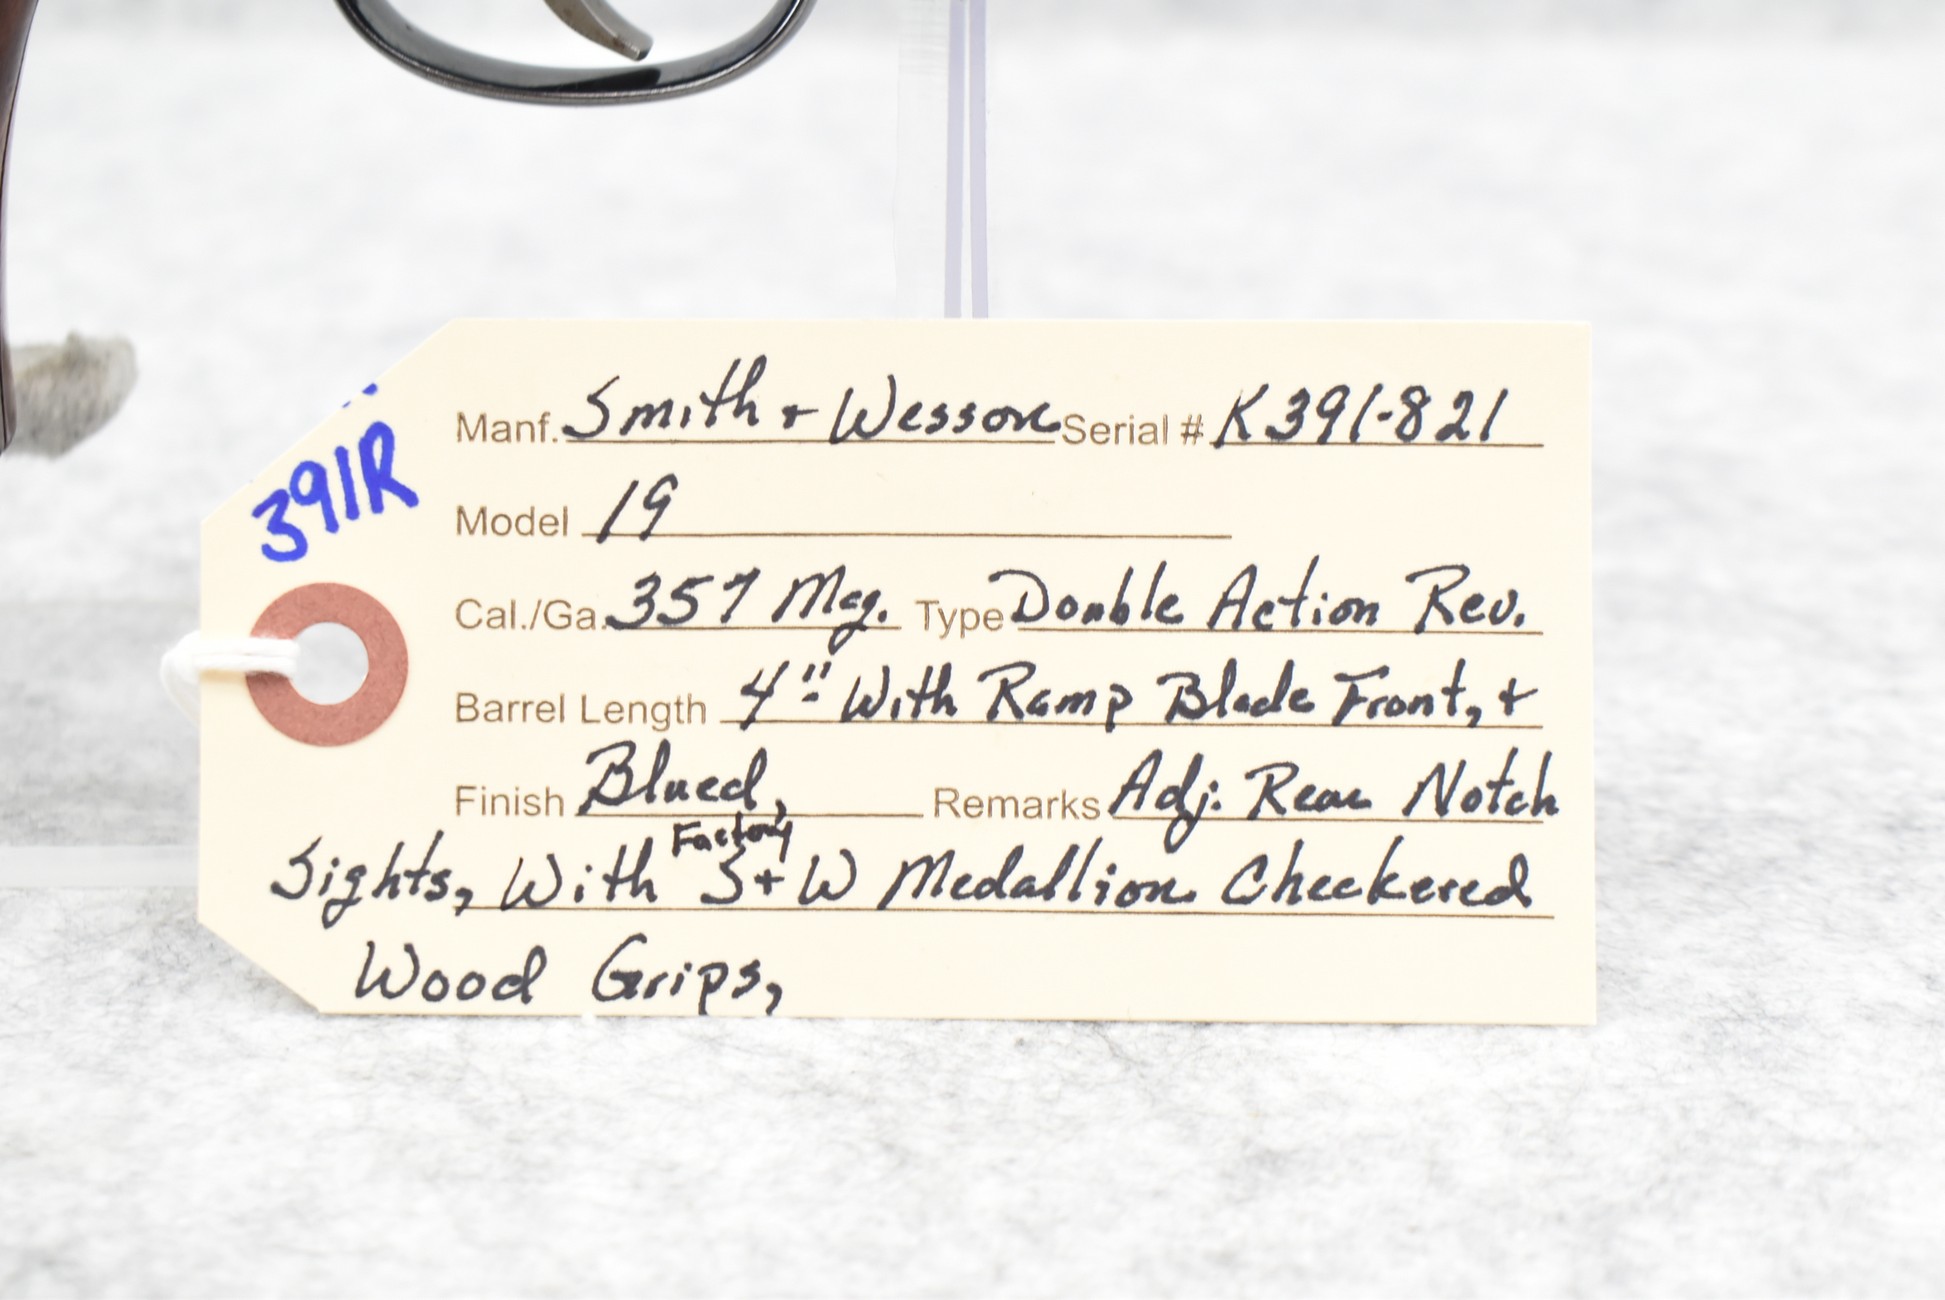 391R
Manf. Smith + Wesson Serial # K391-821
Model 19
Cal./Ga. 357 Mag. Type Double Action Rev.
Barrel Length 4" With Ramp Blade Front, +
Finish Blued, Remarks Adj. Rear Notch
Factory
Sights, With S+W Medallion Checkered
Wood Grips,